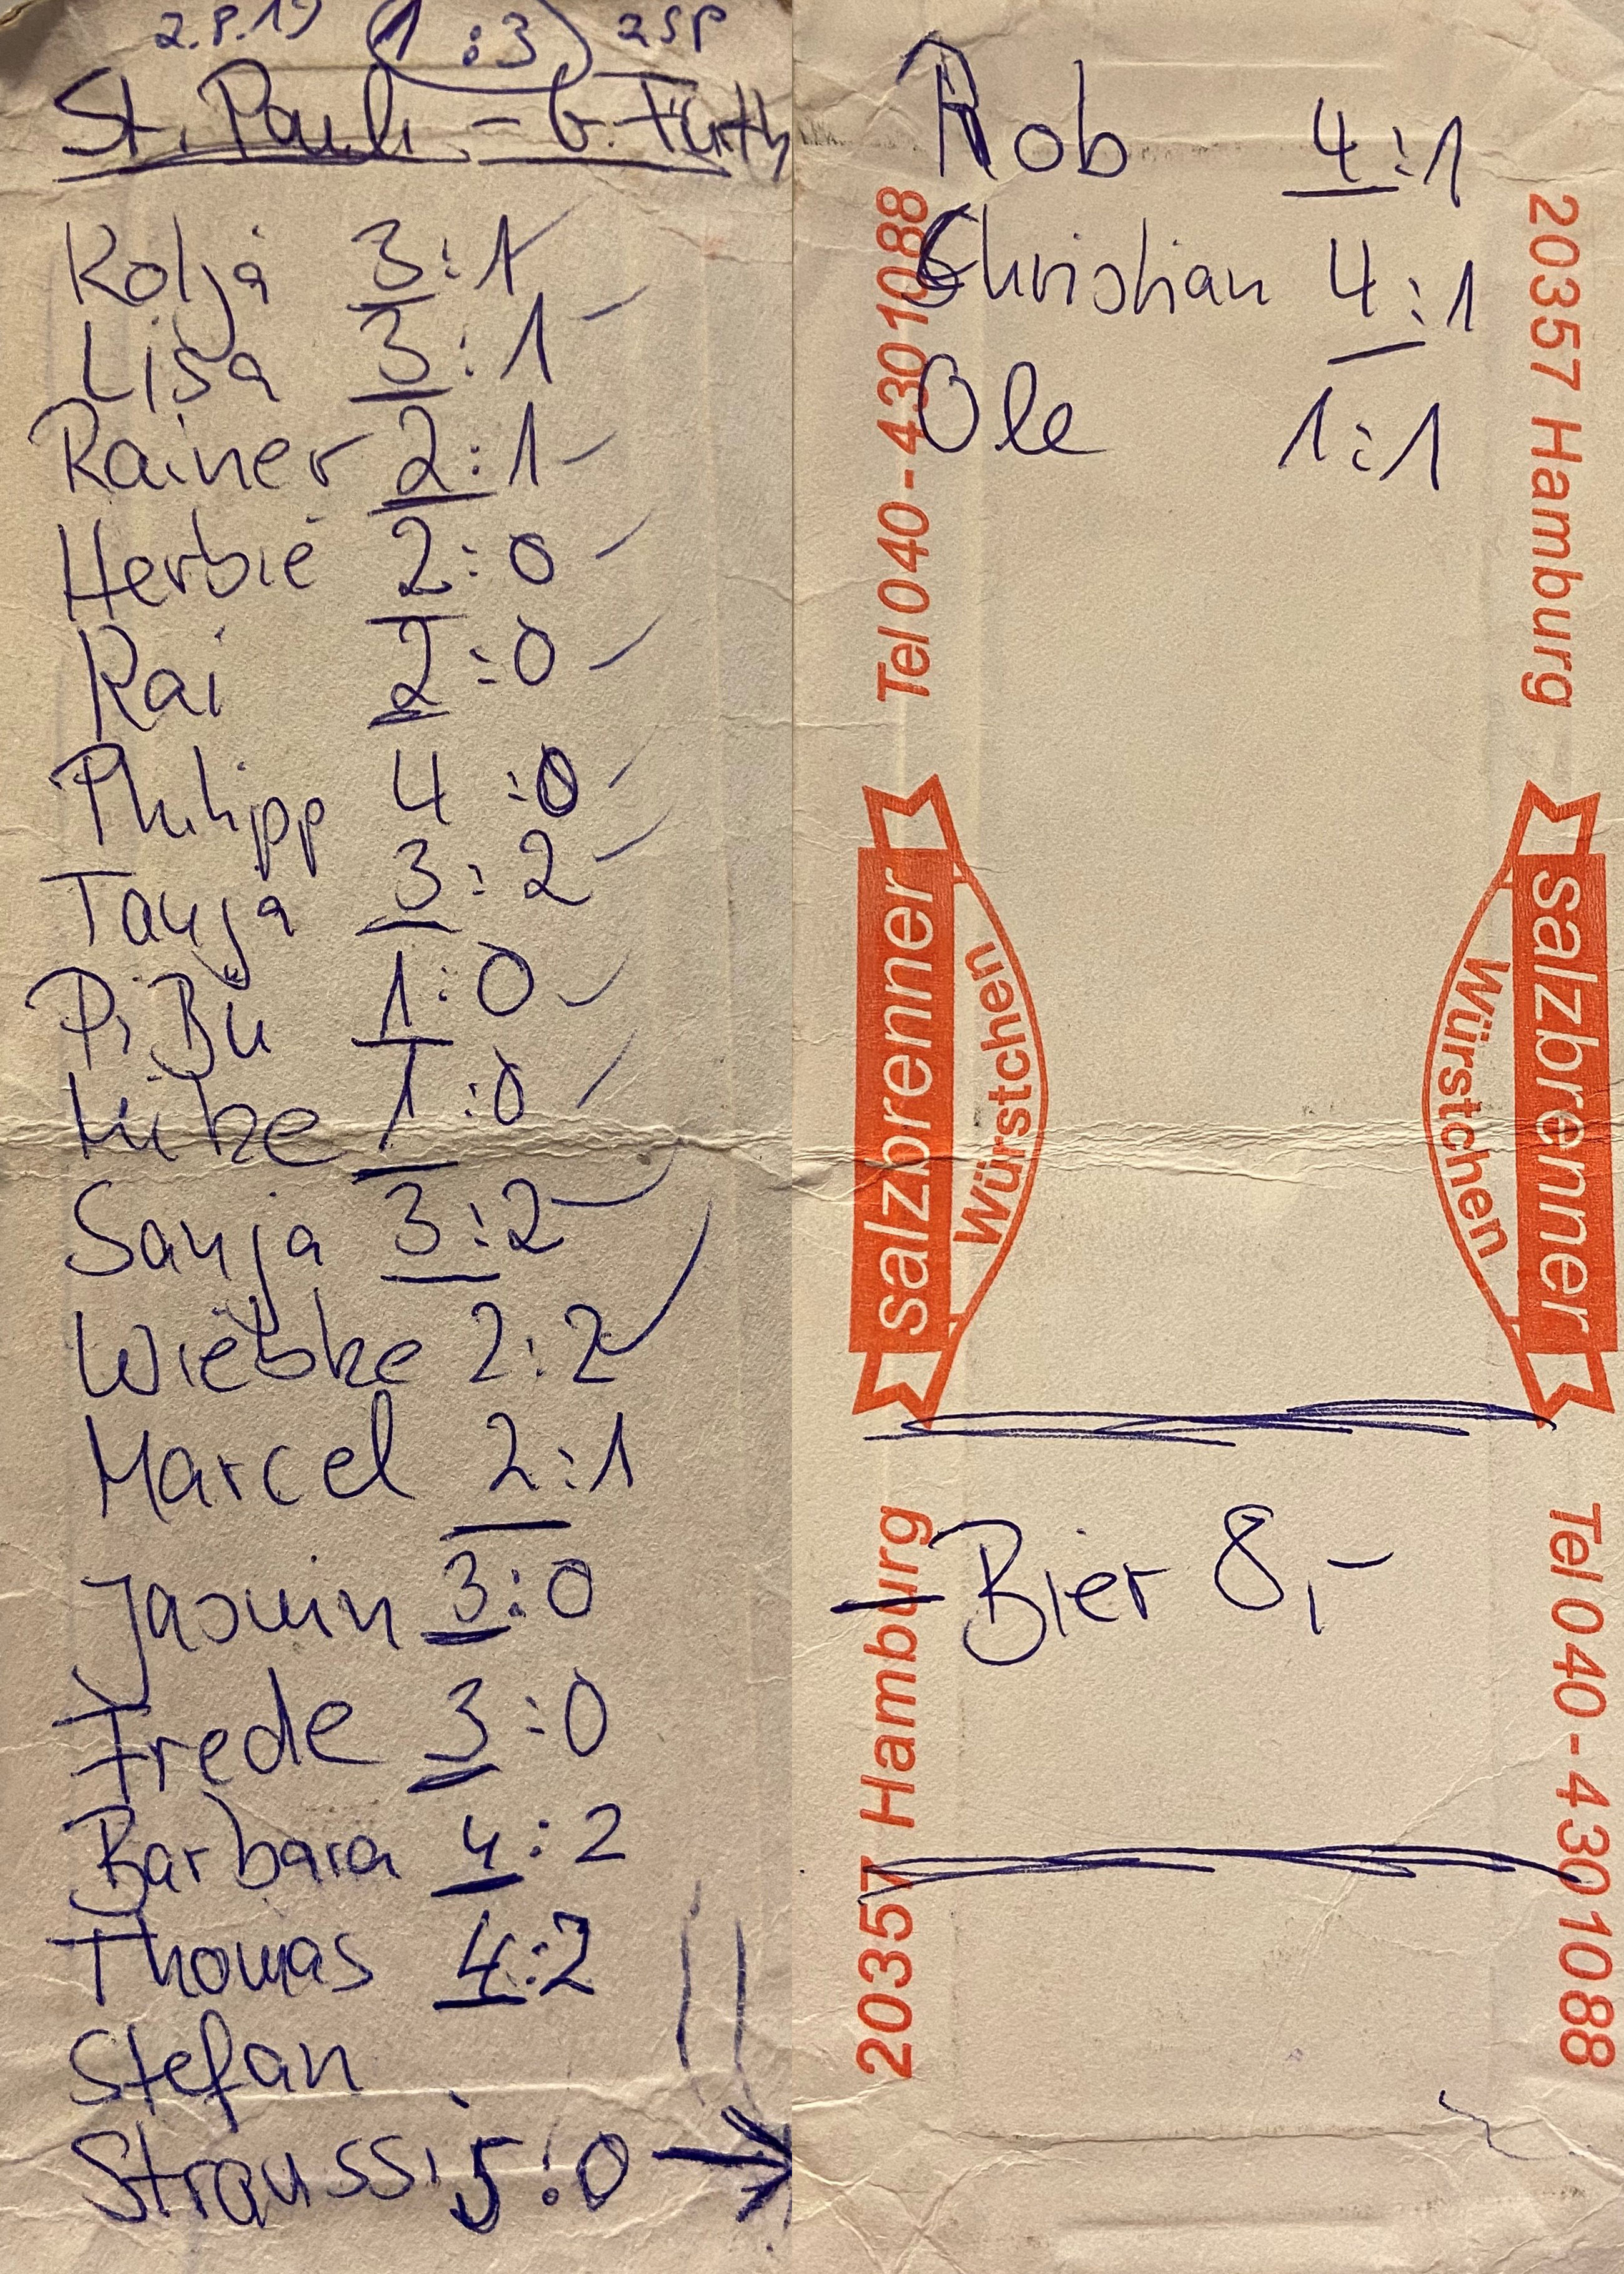 2.8.19 1:3 2SP
St. Pauli - G. Fürth
Kolja 3:1
Lisa 3:1
Rainer 2:1
Herbie 2:0
Kai 2:0
Philipp 4:0
Tanja 3:2
PiBü 1:0
1:0
Sanja 3:2
Wiebke 2:2
Marcel 2:1
Jasmin 3:0
Frede 3:0
Barbara 4:2
Thomas 4:2
Stefan
Straussi 5:0 →
Rob 4:1
Christian 4:1
Ole 1:1
- Bier 8,-
20357 Hamburg
salzbrenner
Würstchen
Tel 040 - 430 1088
20357 Hamburg
salzbrenner
Würstchen
Tel 040 - 430 1088